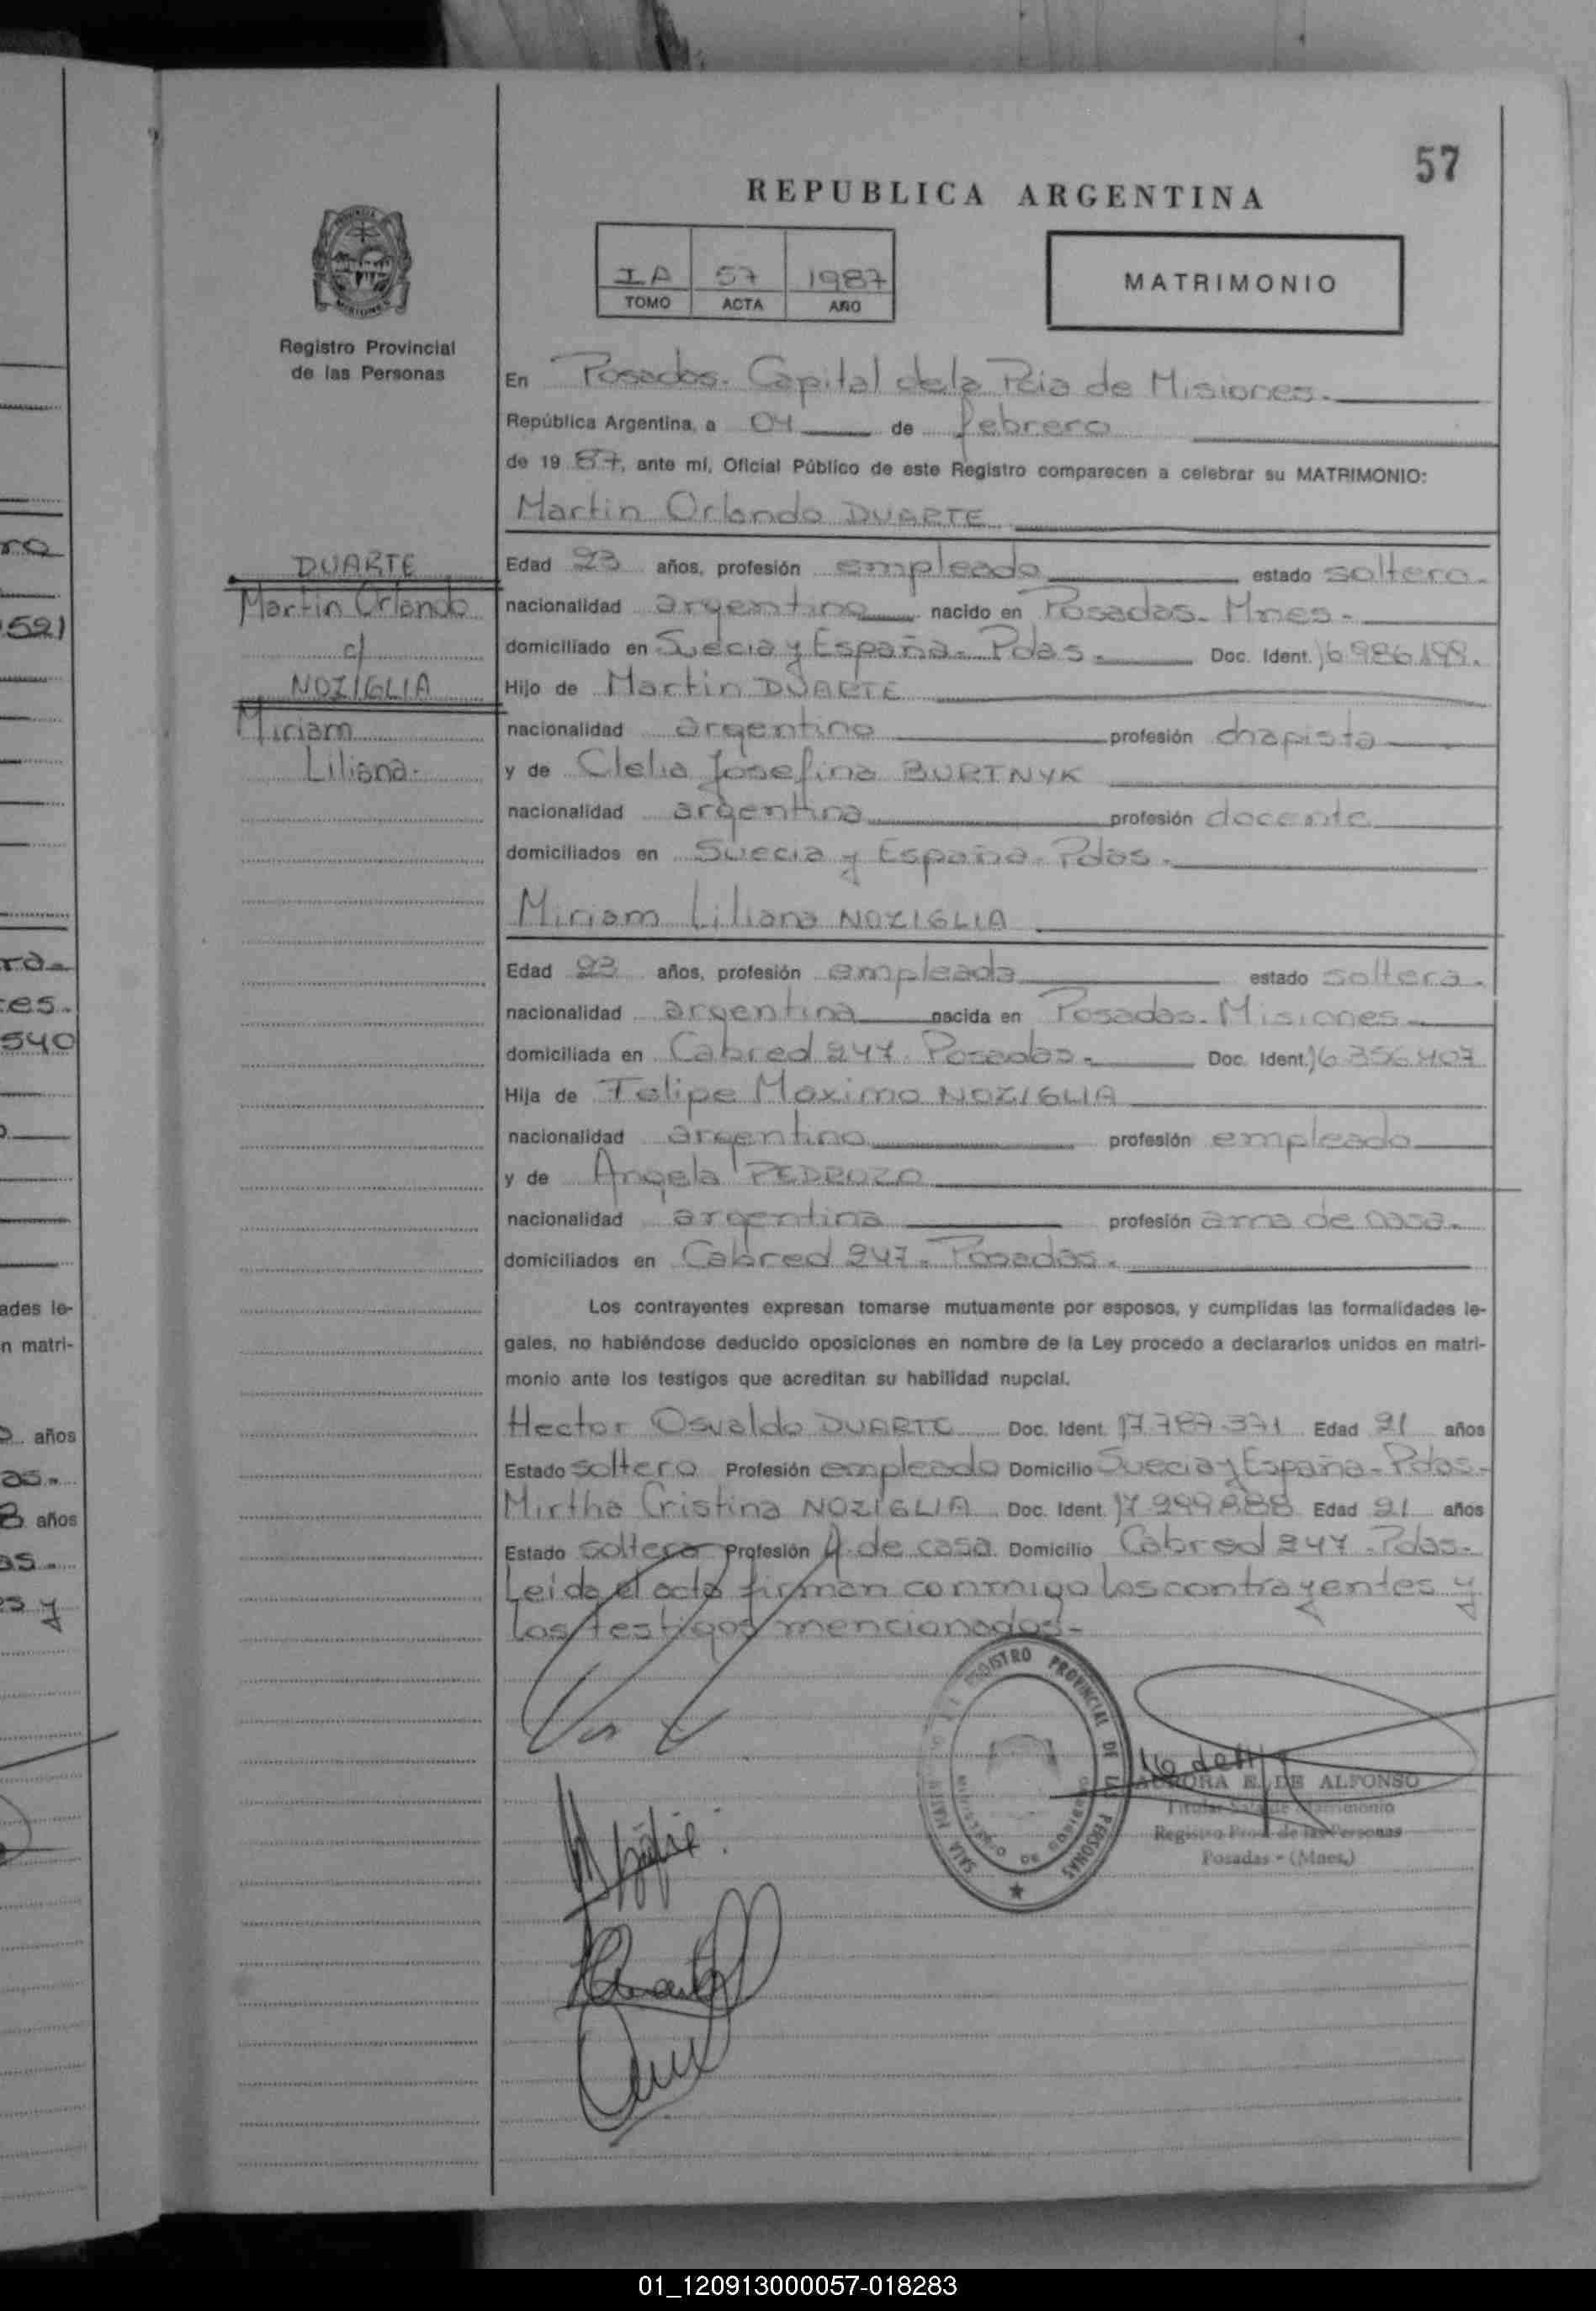 57
REPUBLICA ARGENTINA
IA 57 1987
TOMO ACTA AÑO
MATRIMONIO
Registro Provincial
de las Personas
En Posadas. Capital de la Pcia de Misiones.
República Argentina, a 04 de febrero
de 19 87, ante mí, Oficial Público de este Registro comparecen a celebrar su MATRIMONIO:
Martin Orlando DUARTE
DUARTE
Martin Orlando
c/
NOZIGLIA
Miriam
Liliana.
Edad 23 años, profesión empleado estado soltero.
nacionalidad argentino nacido en Posadas. Mnes.
domiciliado en Suecia y España. Pdas. Doc. Ident. 16986199.
Hijo de Martin DUARTE
nacionalidad argentino profesión chapista
y de Clelia Josefina BURTNYK
nacionalidad argentina profesión docente
domiciliados en Suecia y España. Pdas.
Miriam Liliana NOZIGLIA
Edad 23 años, profesión empleada estado soltera.
nacionalidad argentina nacida en Posadas. Misiones
domiciliada en Cabred 247. Posadas. Doc. Ident. 16356407
Hija de Felipe Maximo NOZIGLIA
nacionalidad argentino profesión empleado
y de Angela PEDROZO
nacionalidad argentina profesión ama de casa.
domiciliados en Cabred 247. Posadas.
Los contrayentes expresan tomarse mutuamente por esposos, y cumplidas las formalidades le-
gales, no habiéndose deducido oposiciones en nombre de la Ley procedo a declararlos unidos en matri-
monio ante los testigos que acreditan su habilidad nupcial.
Hector Osvaldo DUARTE Doc. Ident. 17.787.371 Edad 21 años
Estado soltero Profesión empleado Domicilio Suecia y España - Pdas.
Mirtha Cristina NOZIGLIA Doc. Ident. 17.299.888 Edad 21 años
Estado soltera Profesión A. de casa Domicilio Cabred 247. Pdas.
Leida el acta firman conmigo los contrayentes y
los testigos mencionados-
REGISTRO PROVINCIAL DE LAS PERSONAS
AURORA E. DE ALFONSO
Titular Sala de Matrimonio
Registro Prov. de las Personas
Posadas - (Mnes.)
ro
521
ra.
es.
540
ades le-
n matri-
años
as.
8 años
as.
es y
01_120913000057-018283